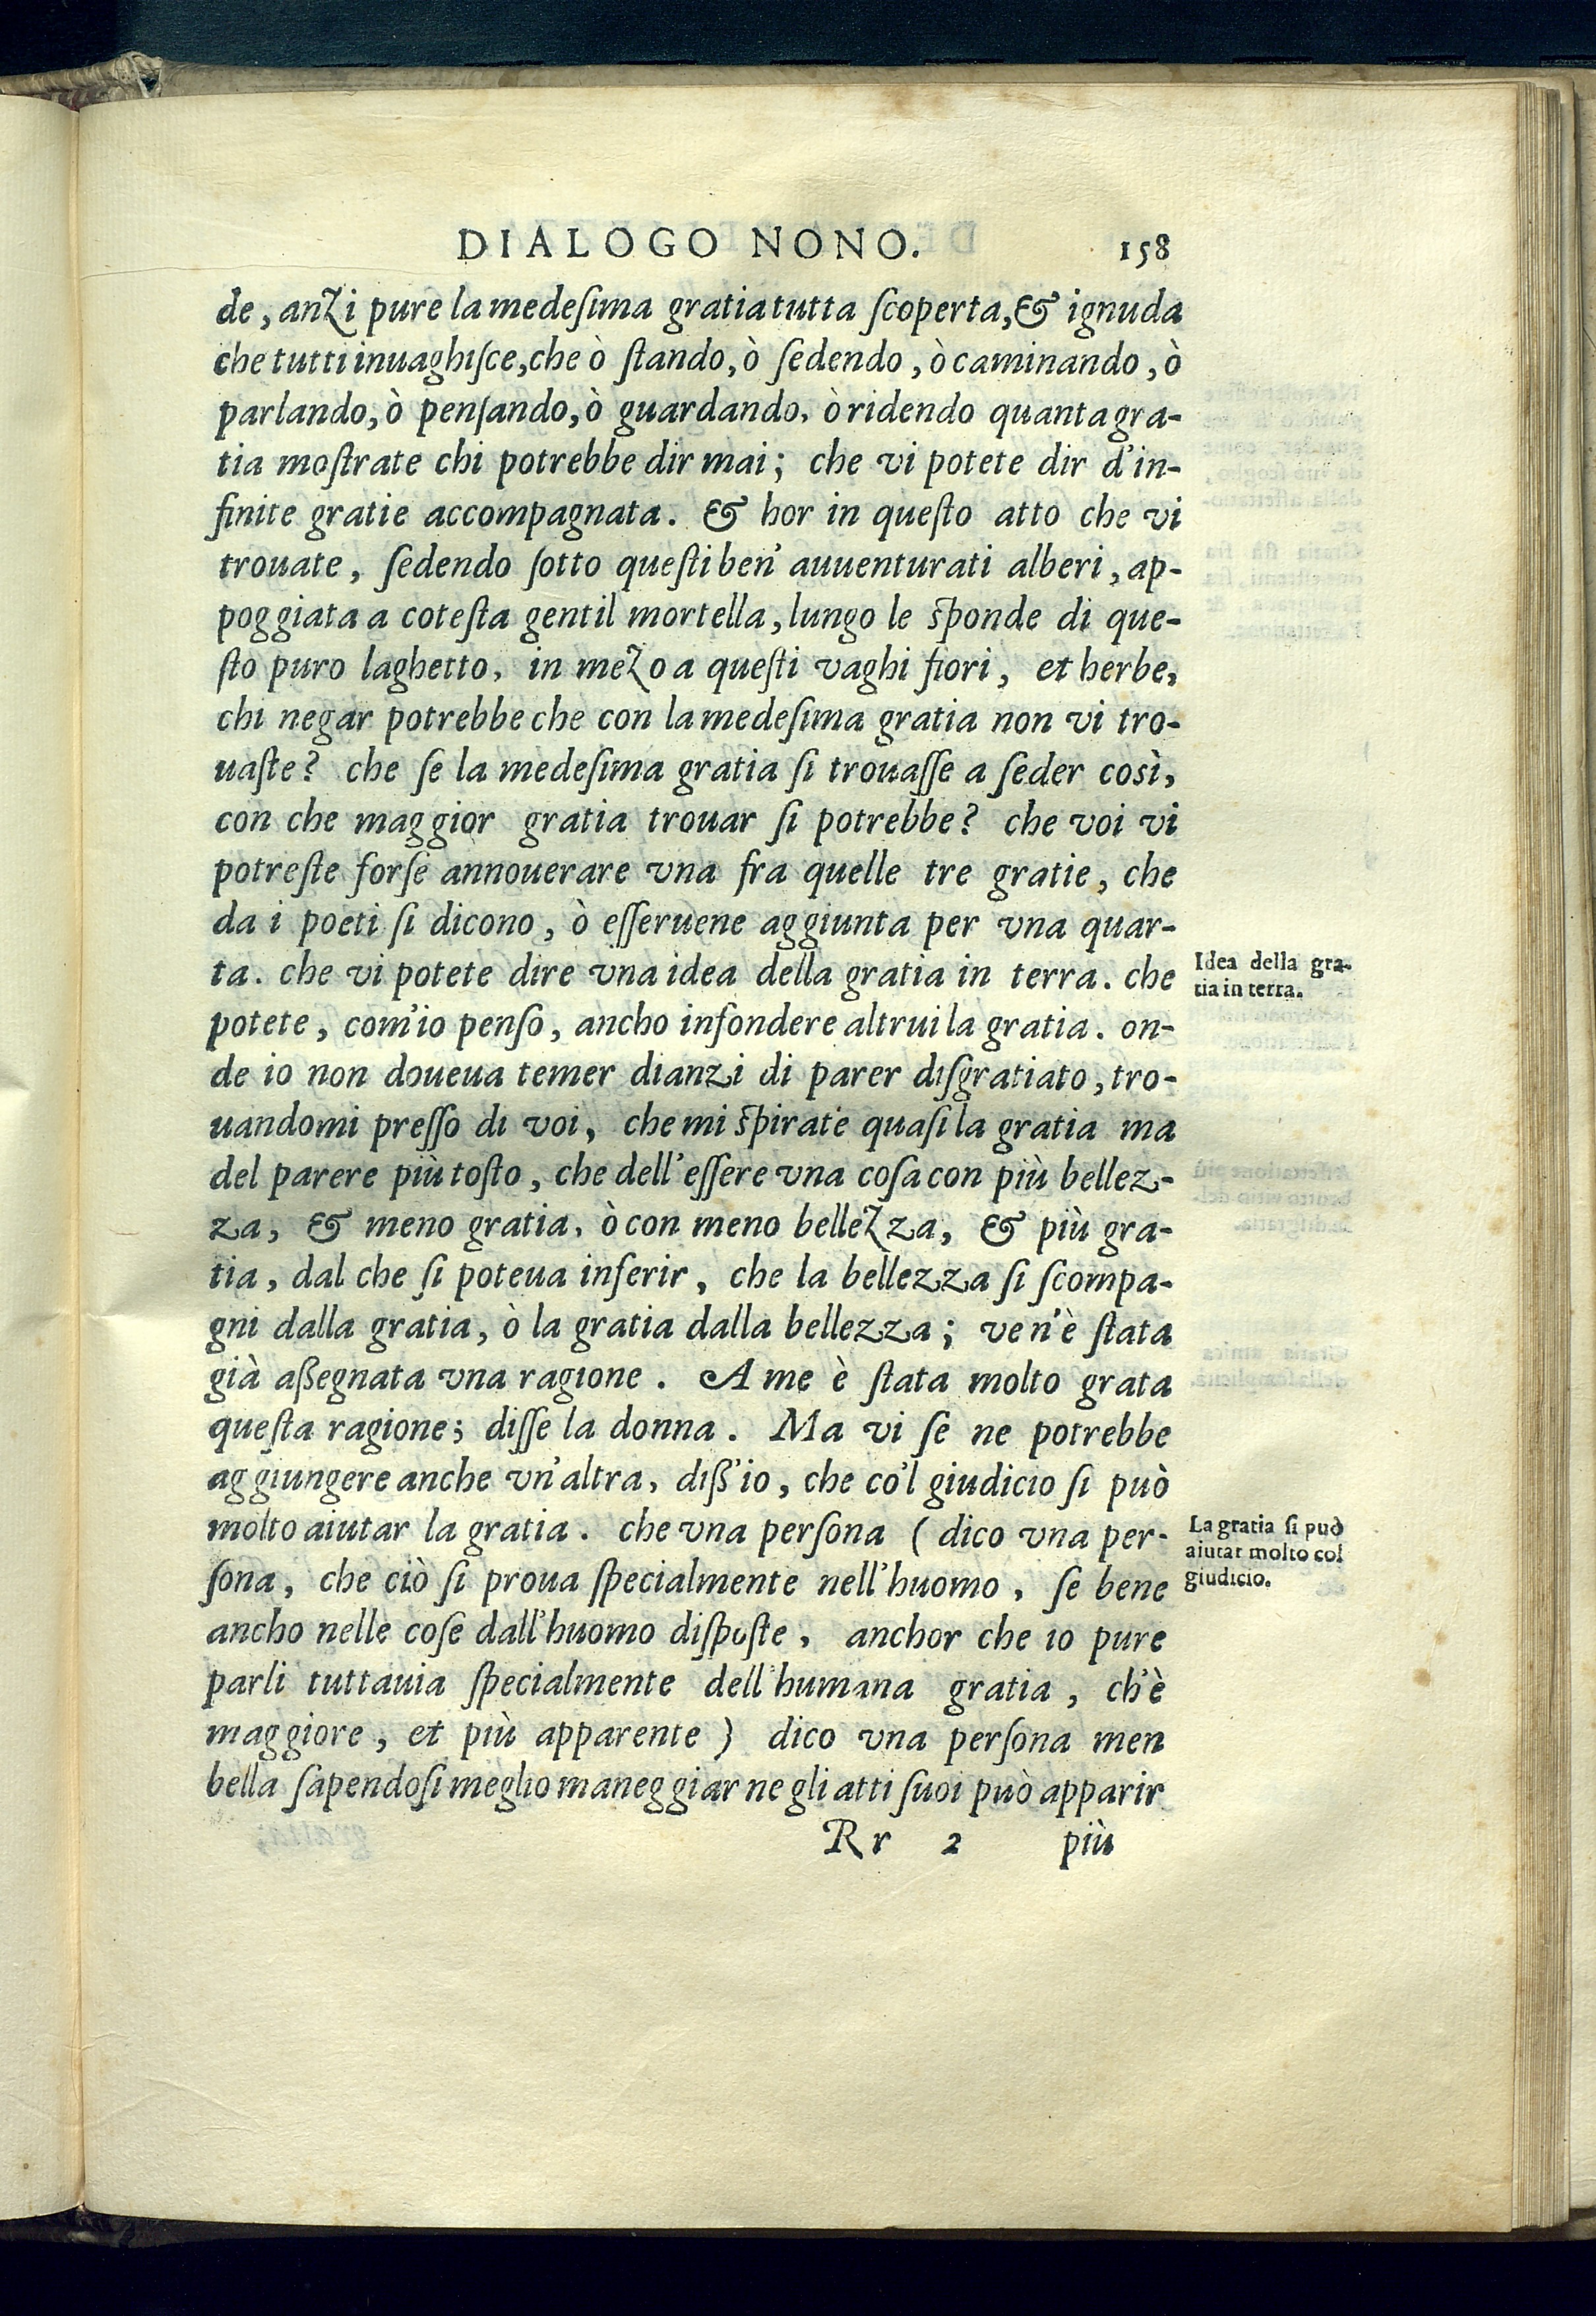 DIALOGO NONO. 158
de, anzi pure la medeſima gratia tutta ſcoperta, & ignuda
che tutti inuaghiſce, che ò ſtando, ò ſedendo, ò caminando, ò
parlando, ò penſando, ò guardando, ò ridendo quanta gra-
tia moſtrate chi potrebbe dir mai; che vi potete dir d'in-
finite gratie accompagnata. & hor in queſto atto che vi
trouate, ſedendo ſotto queſti ben' auuenturati alberi, ap-
poggiata a coteſta gentil mortella, lungo le ſponde di que-
ſto puro laghetto, in mezo a queſti vaghi fiori, et herbe,
chi negar potrebbe che con la medeſima gratia non vi tro-
uaſte? che ſe la medeſima gratia ſi trouaſſe a ſeder così,
con che maggior gratia trouar ſi potrebbe? che voi vi
potreſte forſe annouerare vna fra quelle tre gratie, che
da i poeti ſi dicono, ò eſſeruene aggiunta per vna quar-
ta. che vi potete dire vna idea della gratia in terra. che
Idea della gra-
tia in terra.
potete, com'io penſo, ancho infondere altrui la gratia. on-
de io non doueua temer dianzi di parer diſgratiato, tro-
uandomi preſſo di voi, che mi ſpirate quaſi la gratia ma
del parere più toſto, che dell'eſſere vna coſa con più bellez-
za, & meno gratia, ò con meno bellezza, & più gra-
tia, dal che ſi poteua inferir, che la bellezza ſi ſcompa-
gni dalla gratia, ò la gratia dalla bellezza; ve n'è ſtata
già aßegnata vna ragione. A me è ſtata molto grata
queſta ragione; diſſe la donna. Ma vi ſe ne potrebbe
aggiungere anche vn'altra, diß'io, che co'l giudicio ſi può
molto aiutar la gratia. che vna perſona (dico vna per-
ſona, che ciò ſi proua ſpecialmente nell'huomo, ſe bene
La gratia ſi può
aiutar molto col
giudicio.
ancho nelle coſe dall'huomo diſpoſte, anchor che io pure
parli tuttauia ſpecialmente dell'humana gratia, ch'è
maggiore, et più apparente) dico vna perſona men
bella ſapendoſi meglio maneggiar ne gli atti ſuoi può apparir
Rr 2 più